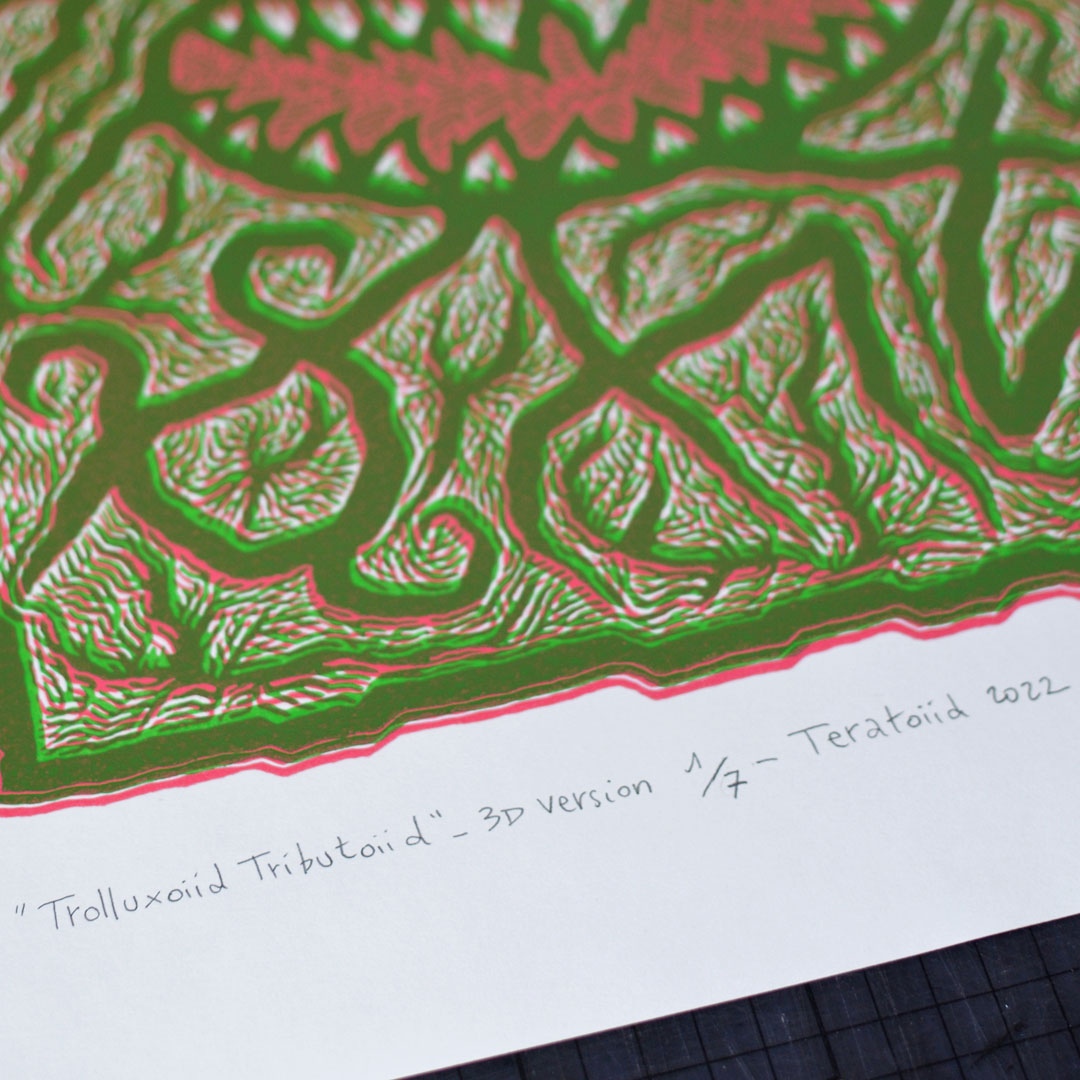 "Trolluxoiid Tributoiid" - 3D version 1/7 - Teratoiid 2022